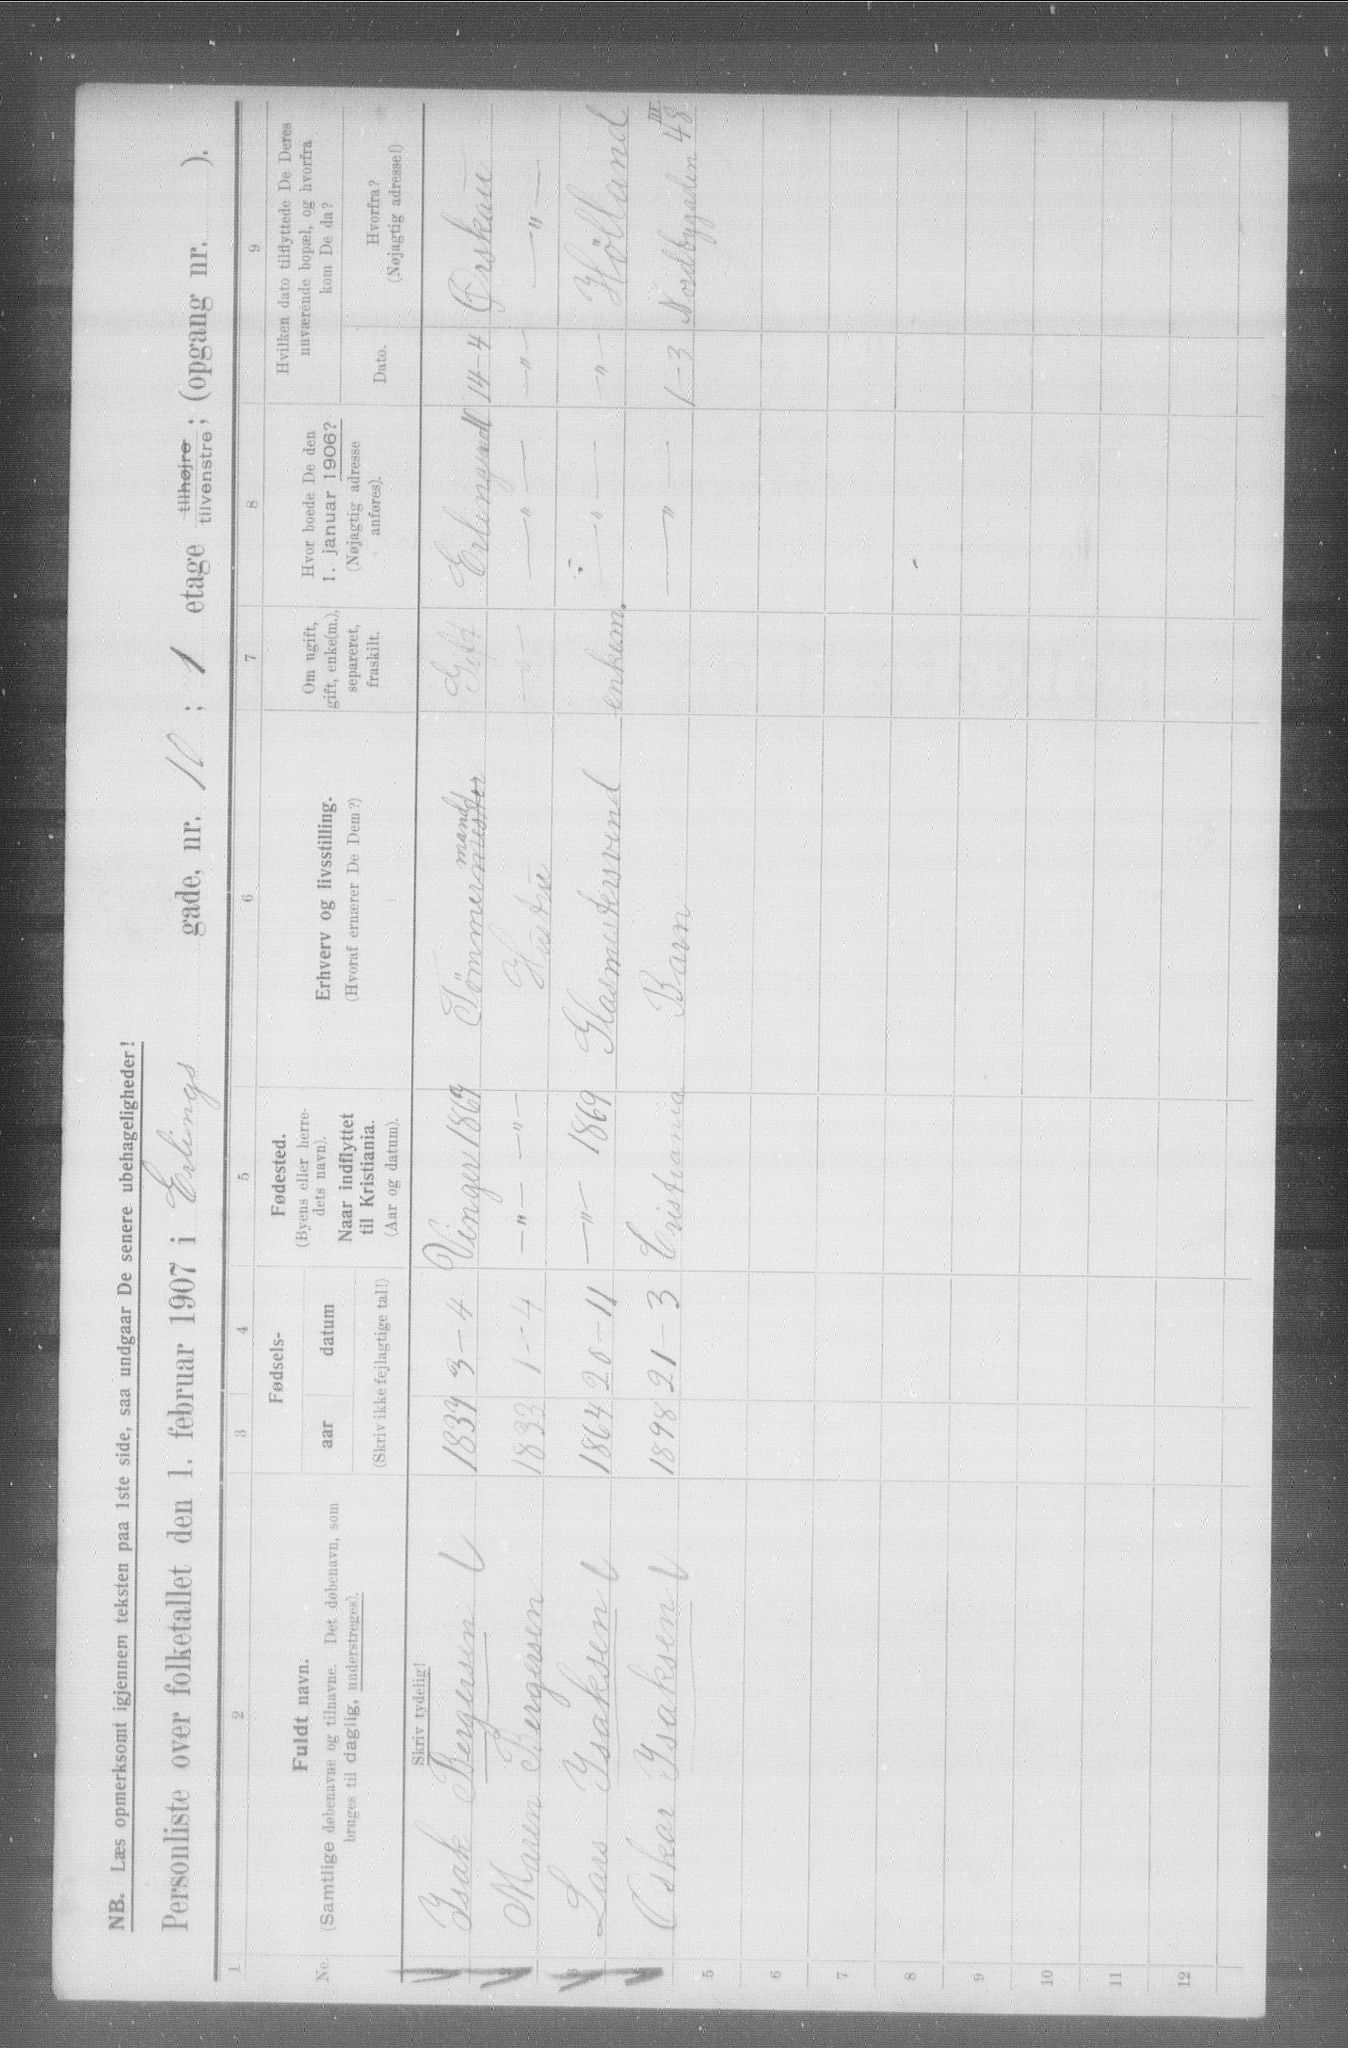 NB. Læs opmerksomt igjennem teksten paa 1ste side, saa undgaar De senere ubehageligheder!
Personliste over folketallet den 1. februar 1907 i Erlings gade, nr. 10; 1 etage tilhøjre tilvenstre; (opgang nr. ).
1 2 3 4 5 6 7 8 9
No.
Fuldt navn.
(Samtlige døbenavne og tilnavne. Det døbenavn, som
bruges til daglig, understreges).
Fødsels-
aar datum
(Skriv ikke fejlagtige tal!)
Fødested.
(Byens eller herre-
dets navn).
Naar indflyttet
til Kristiania.
(Aar og datum).
Erhverv og livsstilling.
(Hvoraf ernærer De Dem?)
Om ugift,
gift, enke(m.),
separeret,
fraskilt.
Hvor boede De den
1. januar 1906?
(Nøjagtig adresse
anføres).
Hvilken dato tilflyttede De Deres
nuværende bopæl, og hvorfra
kom De da?
Dato.
Hvorfra?
(Nøjagtig adresse!)
Skriv tydelig!
Ysak Bergersen 1839 3-4 Vinger 1869 Tömmermand Gift 14-4
Maren Bergersen 1833 1-4 —"— —"— Hustru —"— —"— —"— —"—
Lars Ysaksen 1864 20-11 —"— 1869 Glasmestersvend enkem. —"— —"— Hölland
Oskar Ysaksen 1898 21-3 Cristiania Barn —"— 1-3 Nordbygaden 48 III
5
6
7
8
9
10
11
12